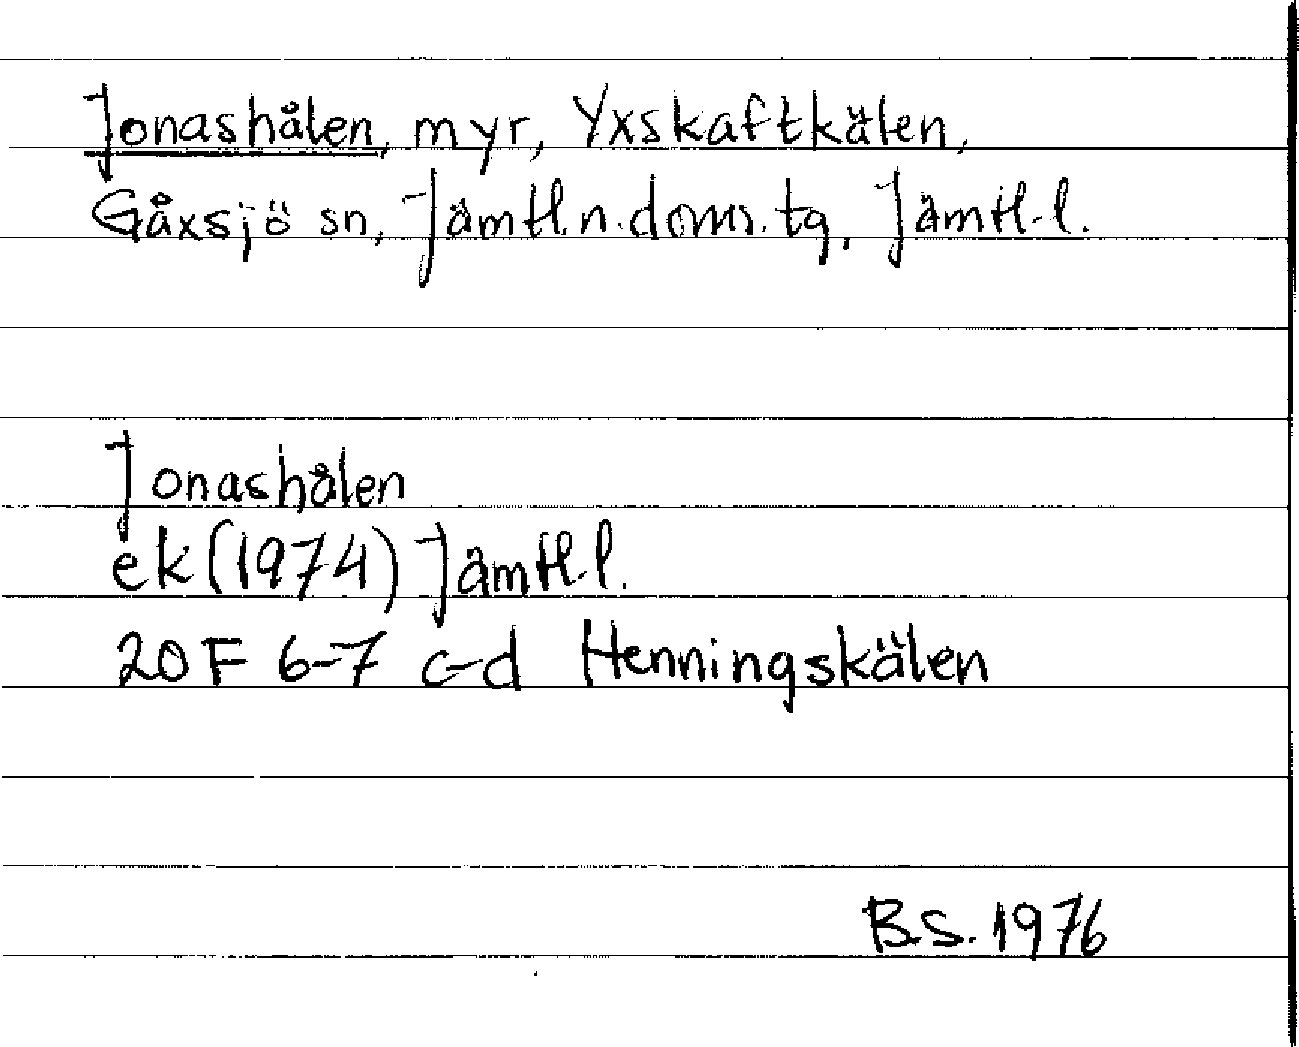 Jonashålen, myr, Yxskaftkälen,
Gåxsjö sn, Jämtl.n.doms.tg, Jämtl.l.
Jonashålen
ek (1974) Jämtl.l.
20 F 6-7 c-d Henningskälen
B.S. 1976